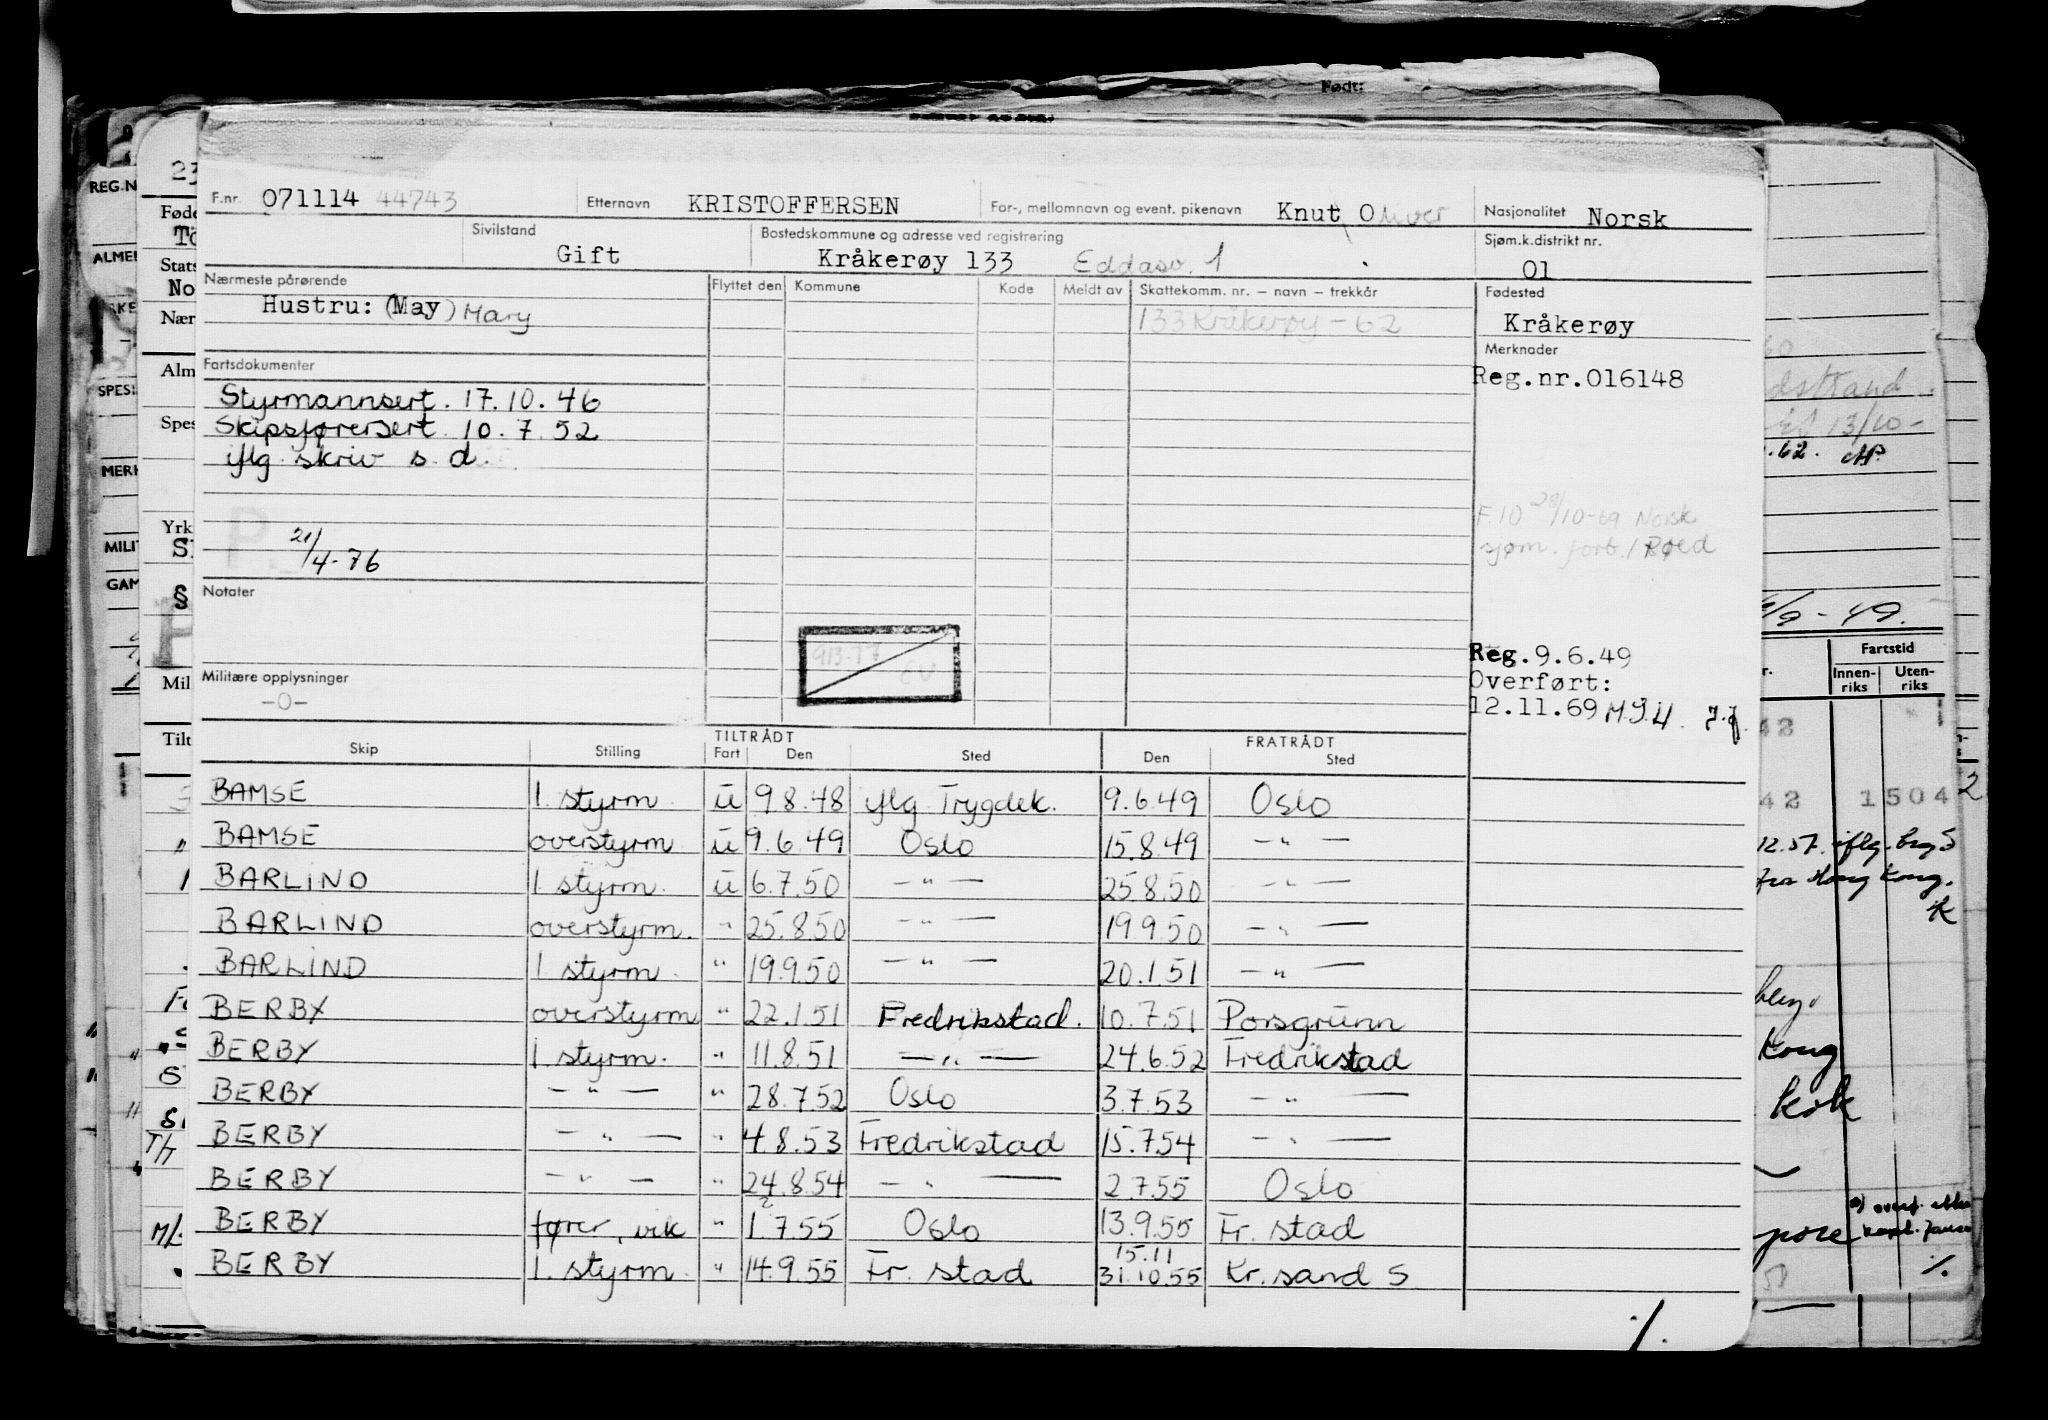 Født:
F.nr. 071114 44743 Etternavn KRISTOFFERSEN For-, mellomnavn og event. pikenavn Knut Oliver Nasjonalitet Norsk
Sivilstand Gift Bostedskommune og adresse ved registrering Kråkerøy 133 Eddasv. 1 Sjøm.k.distrikt nr. 01
Nærmeste pårørende Flyttet den Kommune Kode Meldt av Skattekomm. nr. – navn – trekkår Fødested
Hustru: (May) Mary 133 Kråkerøy – 62 Kråkerøy
Fartsdokumenter Merknader
Reg.nr.016148
Styrmannsert. 17.10.46
Skipsførersert. 10.7.52
iflg. skriv s. d.
F.10 28/10-69 Norsk
sjøm. forb. / Røed
P. 21/4-76
Notater
913-77
Reg.9.6.49
Militære opplysninger Overført:
-0- 12.11.69
Skip Stilling TILTRÅDT Fart Den Sted FRATRÅDT Den Sted
BAMSE 1. styrm. u 9.8.48 iflg. Trygdek. 9.6.49 Oslo
BAMSE overstyrm u 9.6.49 Oslo 15.8.49 — " —
BARLIND 1. styrm. u 6.7.50 — " — 25.8.50 — " —
BARLIND overstyrm. " 25.8.50 — " — 19.9.50 — " —
BARLIND 1. styrm. " 19.9.50 — " — 20.1.51 — " —
BERBY overstyrm " 22.1.51 Fredrikstad. 10.7.51 Porsgrunn
BERBY 1. styrm. " 11.8.51 — " — 24.6.52 Fredrikstad
BERBY — " — " 28.7.52 Oslo 3.7.53 — " —
BERBY — " — " 4.8.53 Fredrikstad 15.7.54 — " —
BERBY — " — " 24.8.54 — " — 2.7.55 Oslo
BERBY fører, vik " 1.7.55 Oslo 13.9.55 Fr. stad
15.11
BERBY 1. styrm. " 14.9.55 Fr. stad 31.10.55 Kr. sand S
Fartstid
Innen-riks Uten-riks
1504